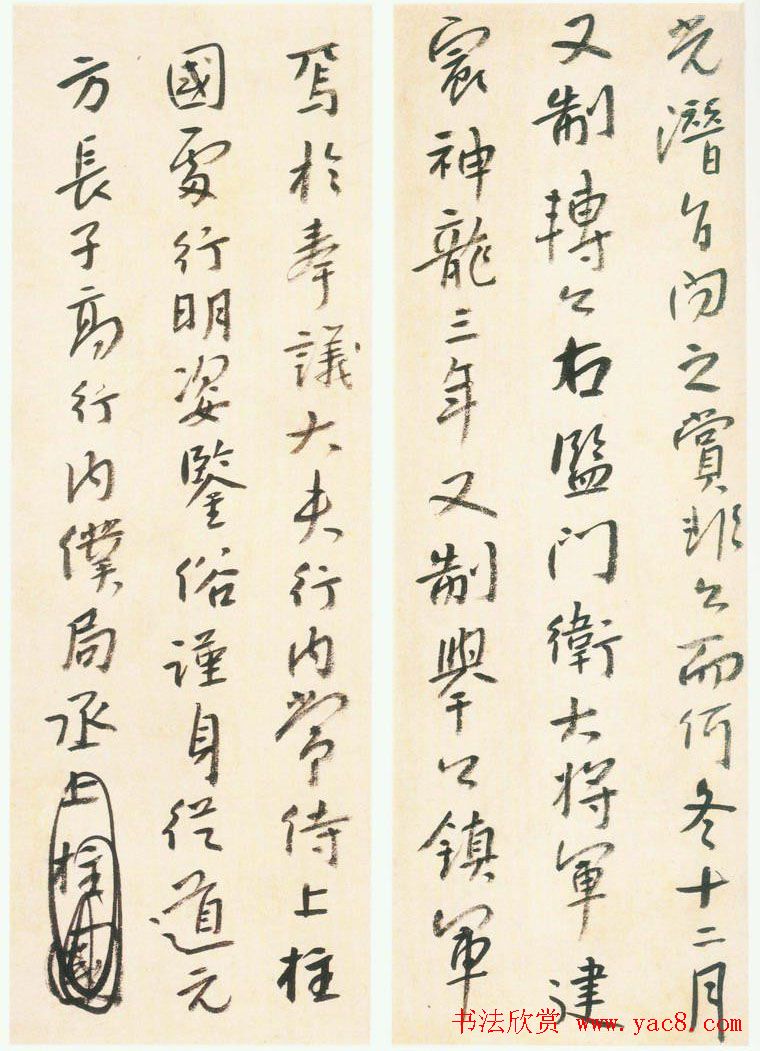 光潛自内之賞非公而何冬十二月
又制轉公右監門衛大將軍建
神龍三年又制舉公鎮軍
焉於奉議大夫行内常侍上柱
國處行明姿鑒俗謹身從道元
方長子高行内僕局丞上柱國
书法欣赏 www.yac8.com